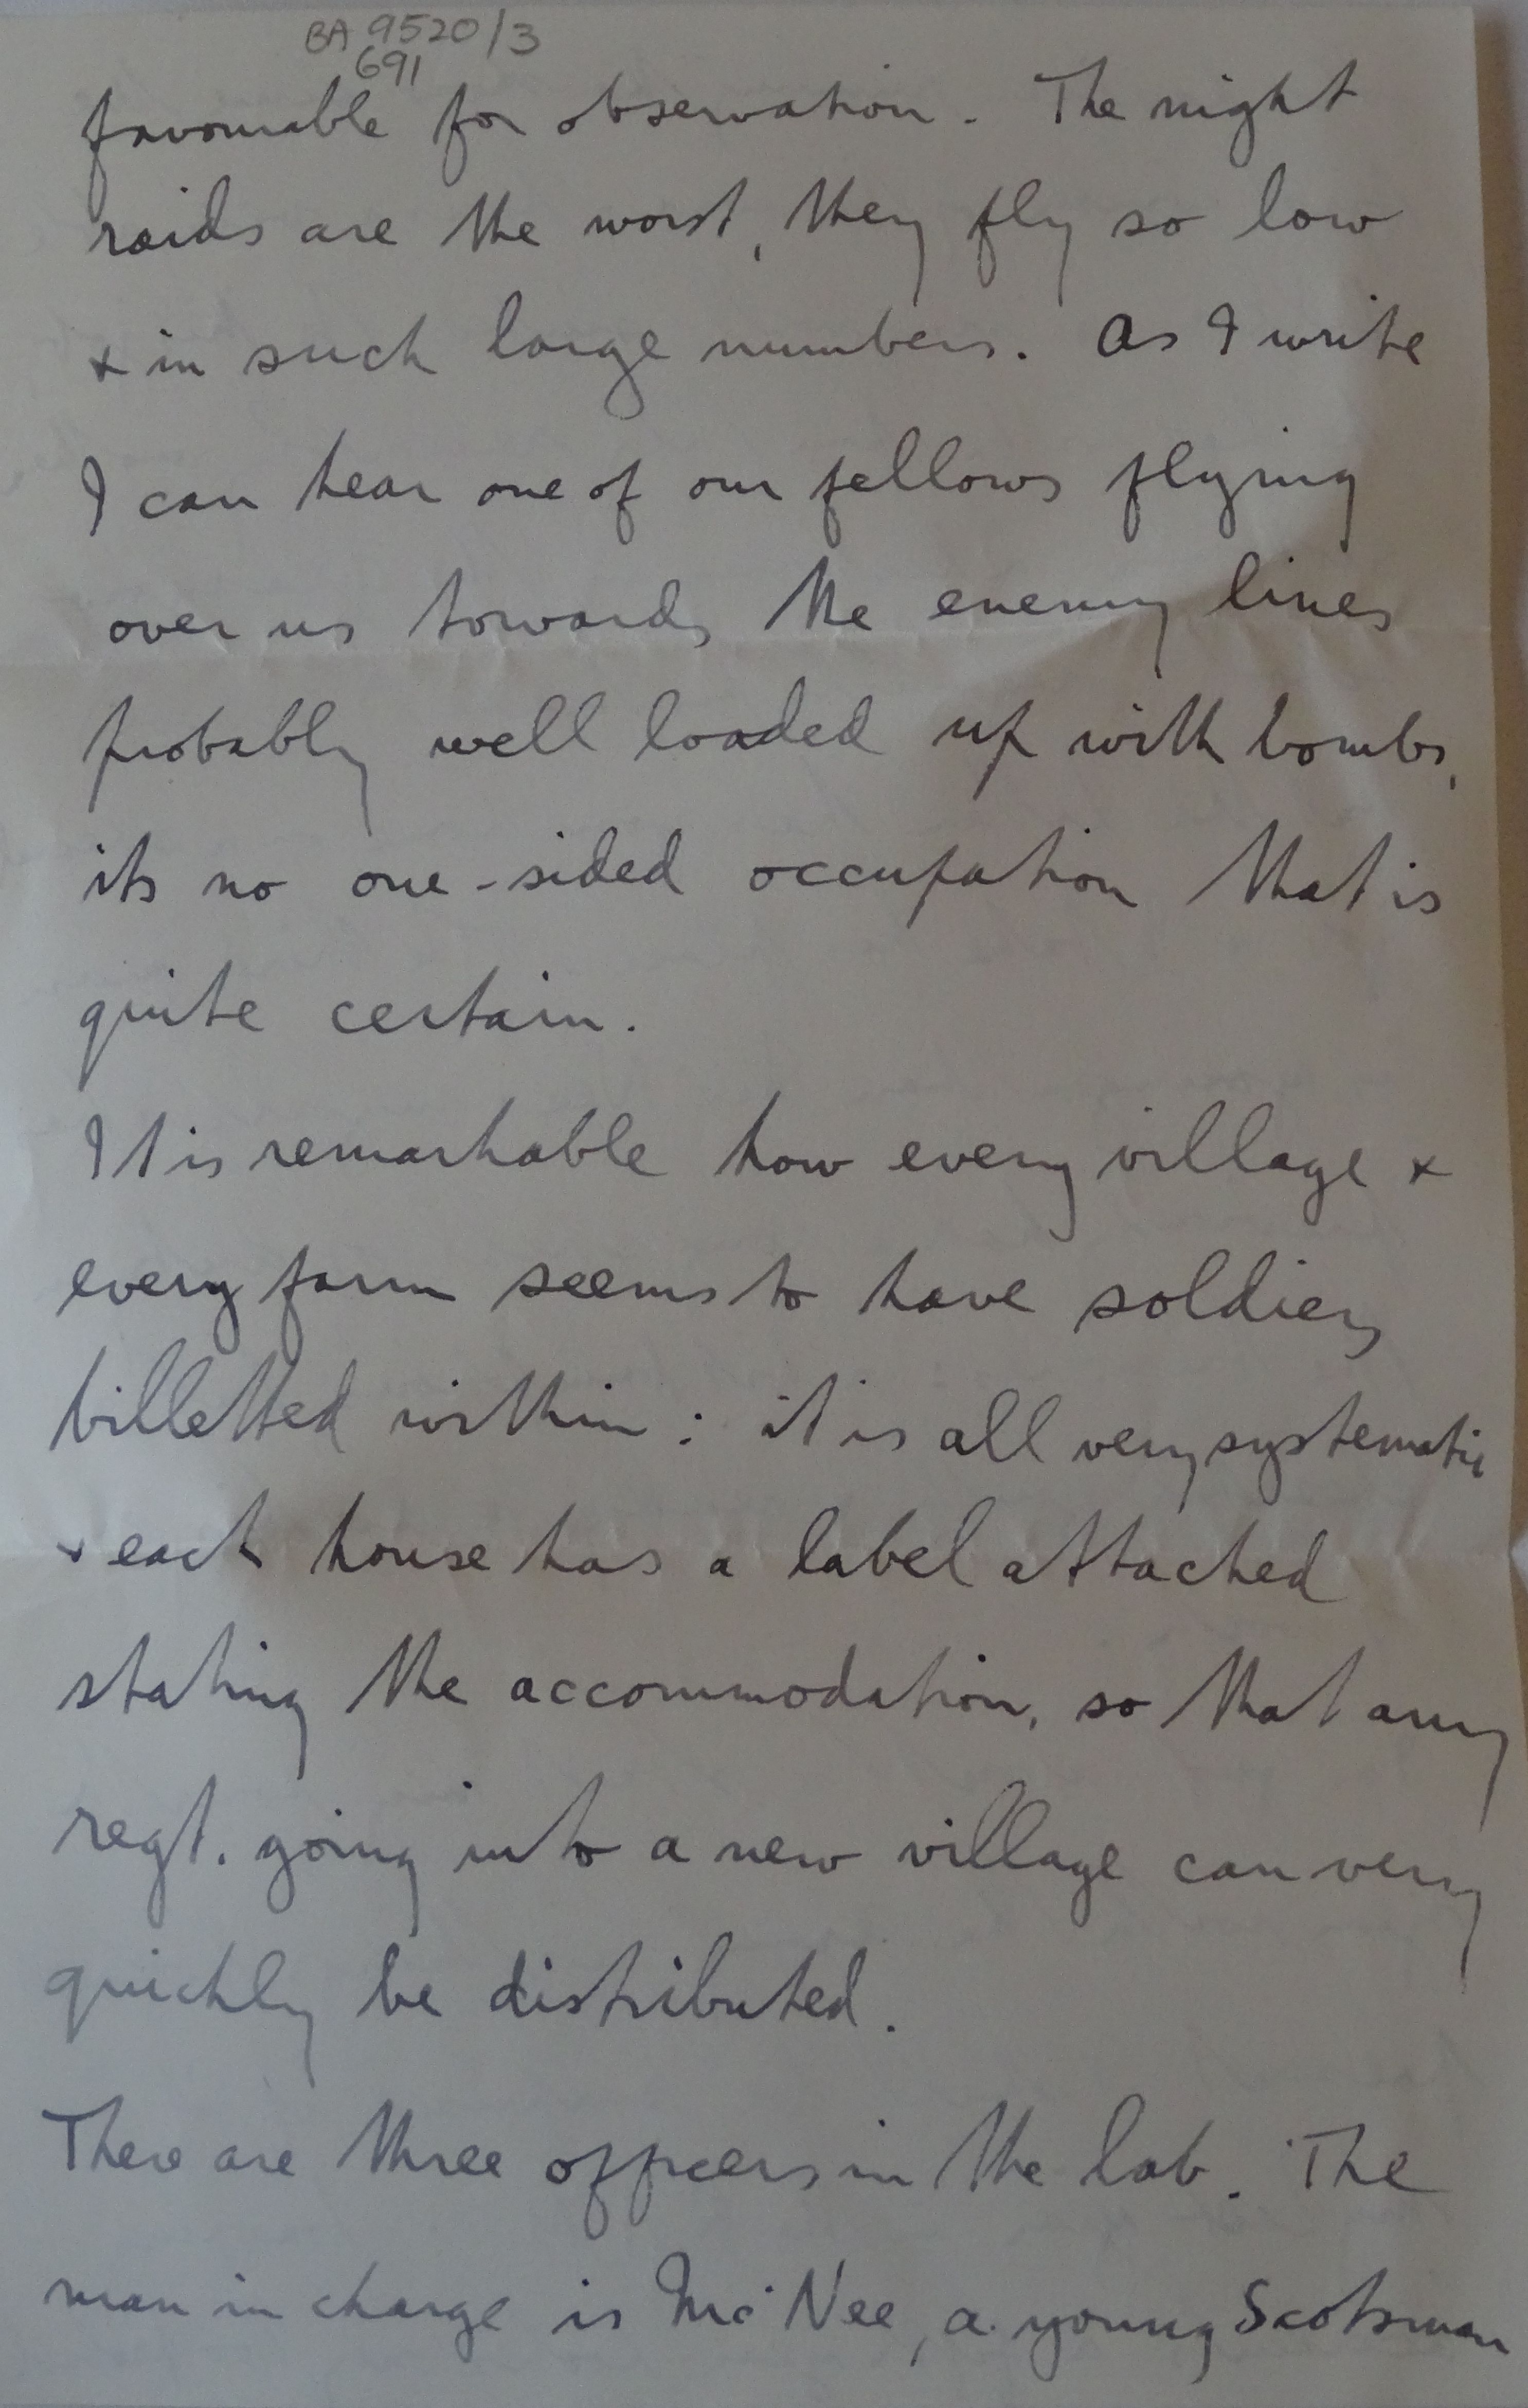 BA 9520/3
691
favourable for observation. The night
raids are the worst, they fly so low
& in such large numbers. As I write
I can hear one of our fellows flying
over us towards the enemy lines
probably well loaded up with bombs,
its no one-sided occupation that is
quite certain.
It is remarkable how every village &
every farm seems to have soldiers
billetted within: it is all very systematic
& each house has a label attached
stating the accommodation, so that any
regt. going into a new village can very
quickly be distributed.
There are three officers in the lab. The
man in charge is McNee, a young Scotsman